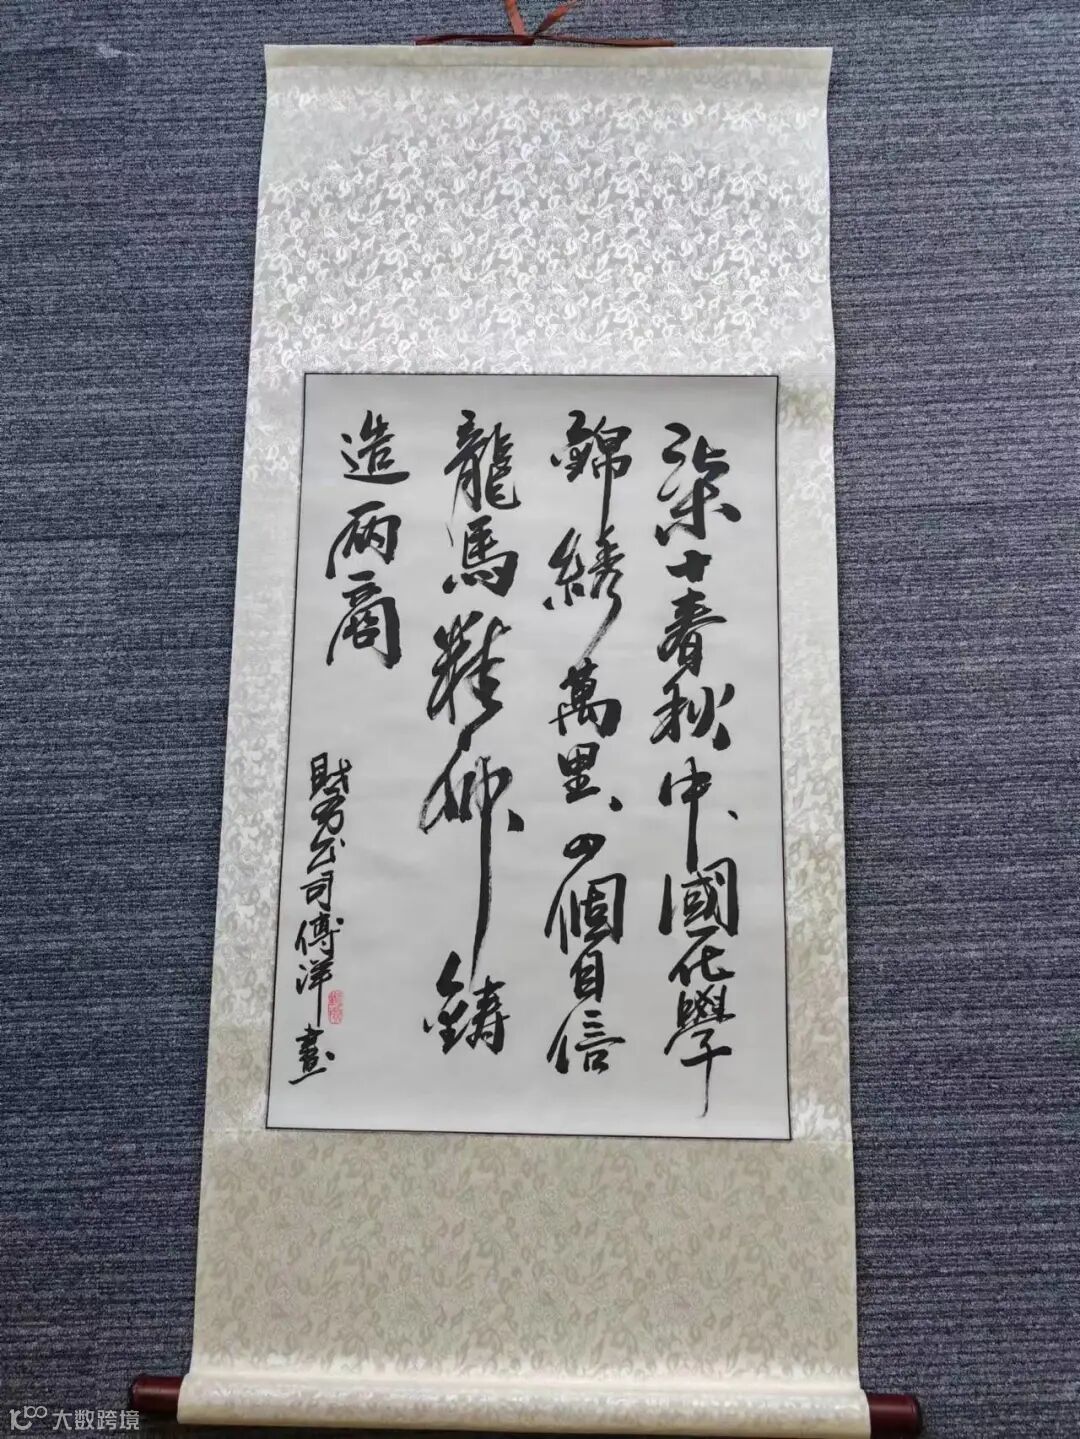 柒十春秋中國化學
錦綉萬里、四個自信
龍馬精神、鑄
造兩商
財务公司傅洋
書
大数跨境